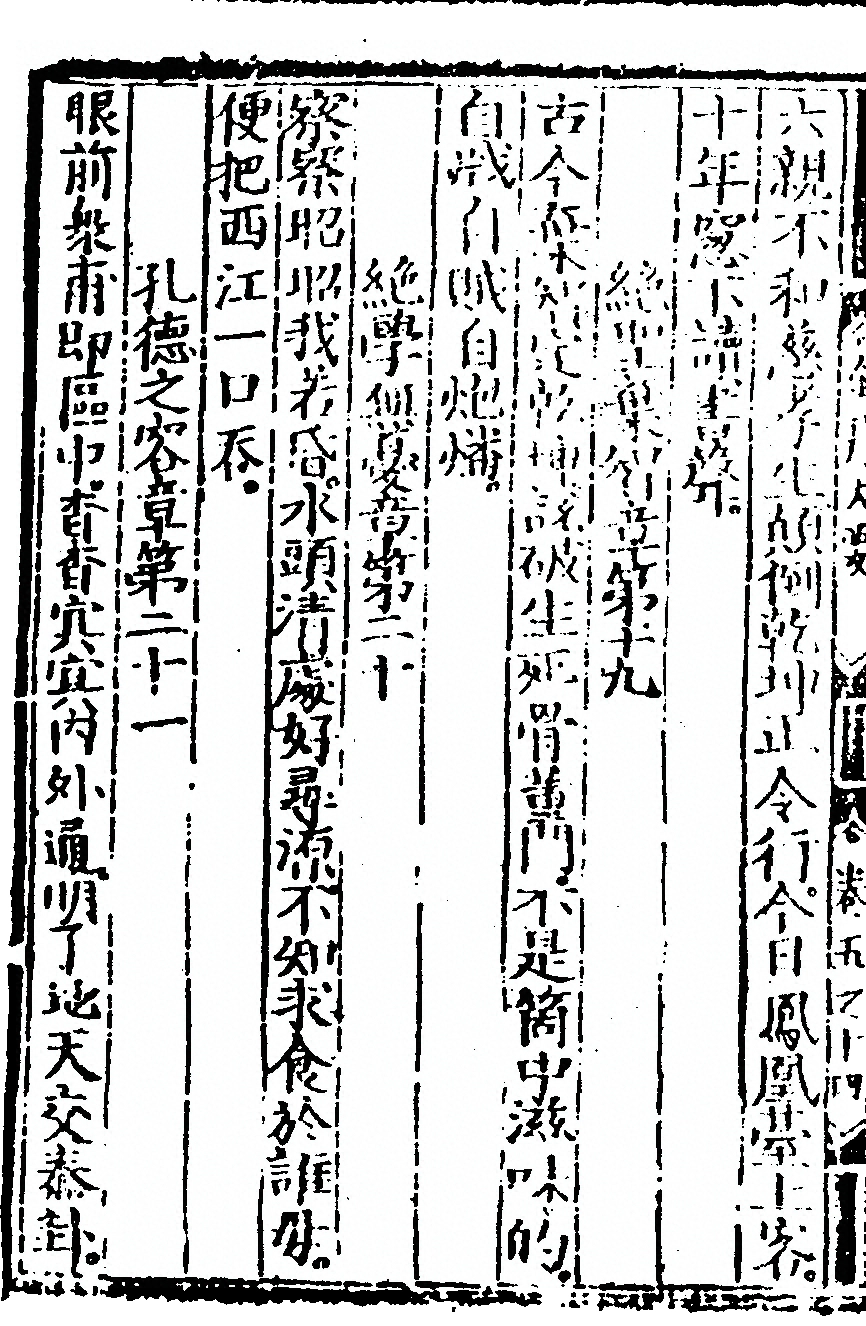 六親不和慈孝生顛倒乾坤正令行。今日鳳凰臺上客。
十年窓下讀書聲。
絶聖棄智章第十九
古今棄智定乾坤識破生死骨董門。不是箇中滋味的。
自戕自賊自炮燔。
絶學無憂章第二十
察察昭昭我若昏。水頭清處好尋源不知求食於誰母。
便把西江一口吞。
孔德之容章第二十一
眼前衆甫即區中。杳杳冥冥内外通。明了地天交泰卦。
卷五之十四